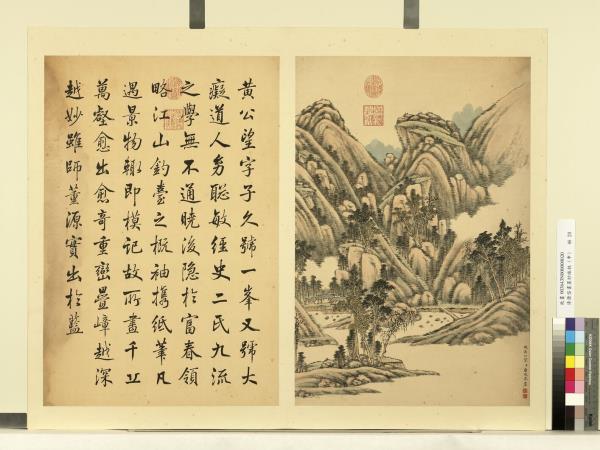 黃公望字子久號一峯又號大
癡道人幼聰敏經史二氏九流
之學無不通曉後隱於富春領
略江山釣臺之概袖攜紙筆凡
遇景物輒即模記故所畫千丘
萬壑愈出愈奇重巒疊嶂越深
越妙雖師董源實出於藍